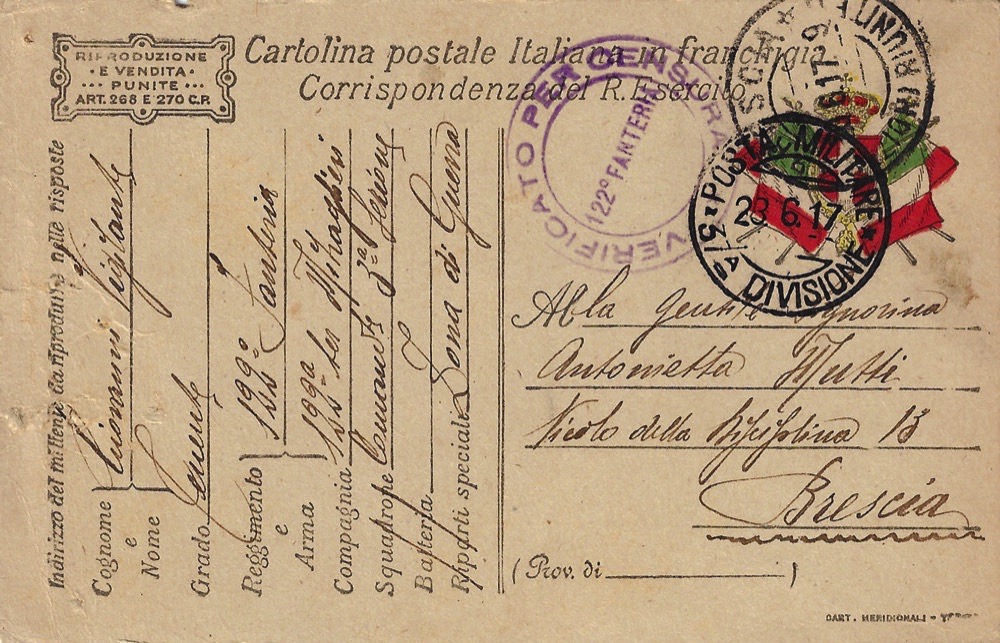 RIPRODUZIONE
· E VENDITA ·
··· PUNITE ···
ART. 268 E 270 C.P.
Cartolina postale Italiana in franchigia
Corrispondenza del R. Esercito
VERIFICATO PER CENSURA
122° FANTERIA
POSTA MILITARE
23.6.17
DIVISIONE
Indirizzo del mittente da riprodursi nelle risposte
Cognome
e
Nome
Grado Tenente
Reggimento 122° Fanteria
e
Arma
Compagnia
Squadrone Comand. 3ª Sezione
Batteria
Riparti speciali Zona di Guerra
Alla Gentile Signorina
Antonietta Mutti
Vicolo della 13
Brescia
(Prov. di )
CART. MERIDIONALI -